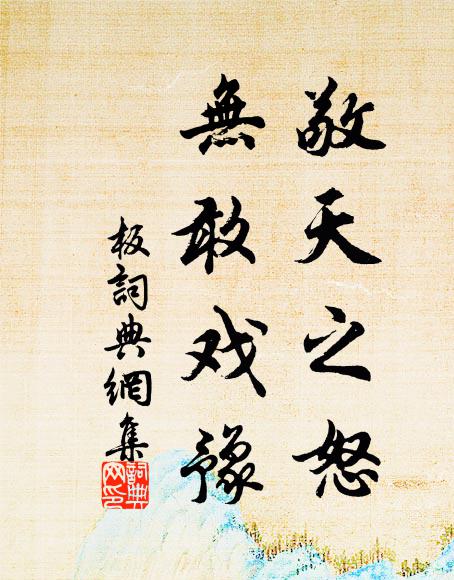 敬天之怒
無敢戏豫
板詞典網集
詞典
网印